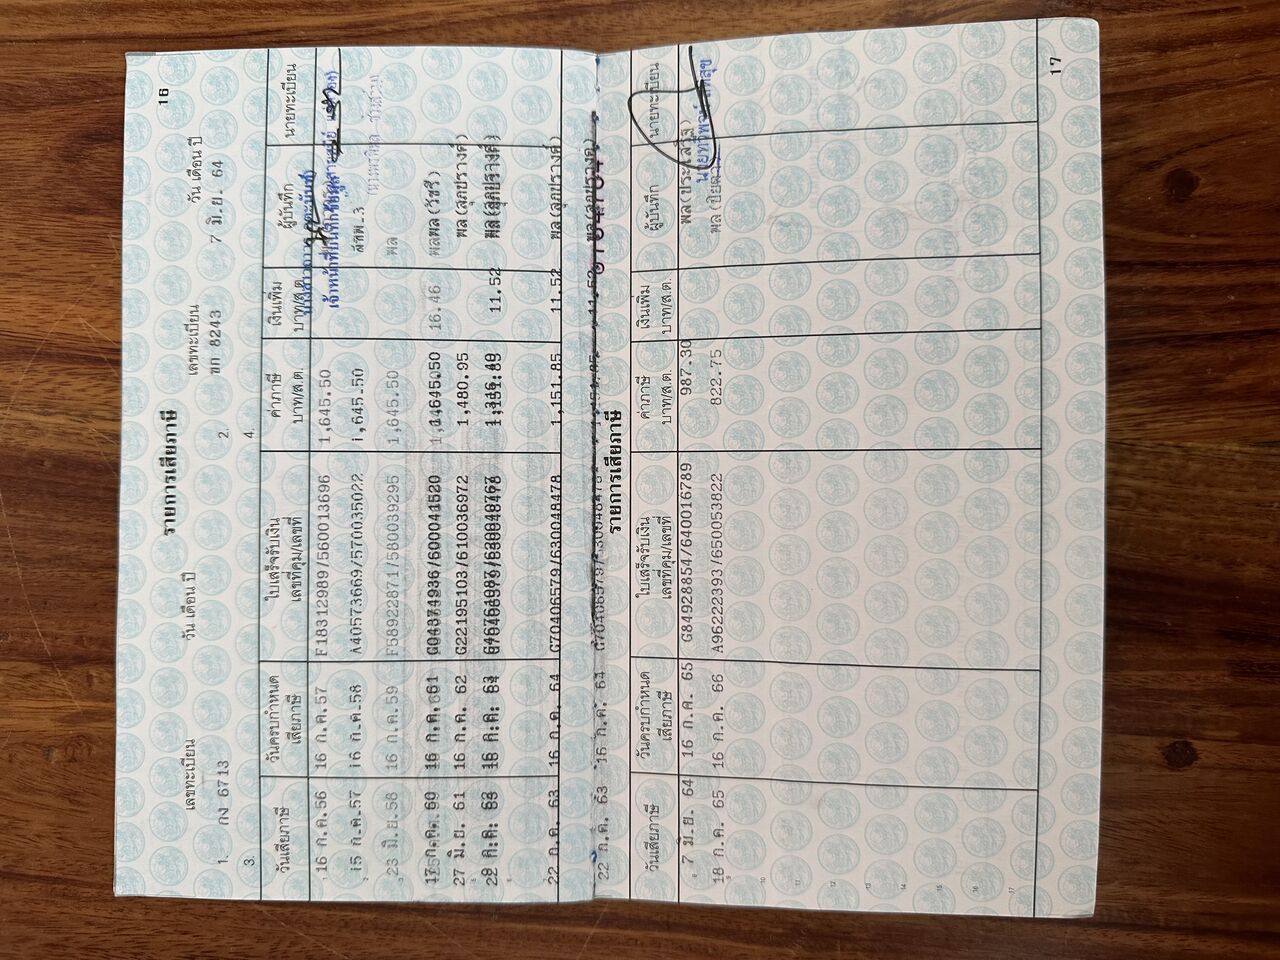 16
รายการเสียภาษี
เลขทะเบียน วัน เดือน ปี เลขทะเบียน วัน เดือน ปี
1. กง 6713 2. ขก 8243 7 มิ.ย. 64
3. 4.
วันเสียภาษี วันครบกำหนด เสียภาษี ใบเสร็จรับเงิน เลขที่คุม/เลขที่ ค่าภาษี บาท/ส.ต. เงินเพิ่ม บาท/ส.ต. ผู้บันทึก นายทะเบียน
16 ก.ค.56 16 ก.ค. 57 F18312989/560013696 1,645.50
เจ้าหน้าที่บันทึกข้อมูล
15 ก.ค.57 16 ก.ค.58 A40573669/570035022 1,645.50 สรพ.3
23 มิ.ย.58 16 ก.ค.59 F58922871/580039295 1,645.50 พล
16.46 พล(วัชรี)
27 มิ.ย. 61 16 ก.ค. 62 G22195103/610036972 1,480.95 พล(ลุภปรางค์)
11.52
22 ก.ค. 63 16 ก.ค. 64 G70406579/630048478 1,151.85 11.52 พล(ลุภปรางค์)
22 ก.ค. 63 16 ก.ค. 64 G70406579/630048478 11.52
รายการเสียภาษี
วันเสียภาษี วันครบกำหนด เสียภาษี ใบเสร็จรับเงิน เลขที่คุม/เลขที่ ค่าภาษี บาท/ส.ต. เงินเพิ่ม บาท/ส.ต. ผู้บันทึก นายทะเบียน
7 มิ.ย. 64 16 ก.ค. 65 G84928854/640016789 987.30
18 ก.ค. 65 16 ก.ค. 66 A96222393/650053822 822.75
10
11
12
13
14
15
16
17
17